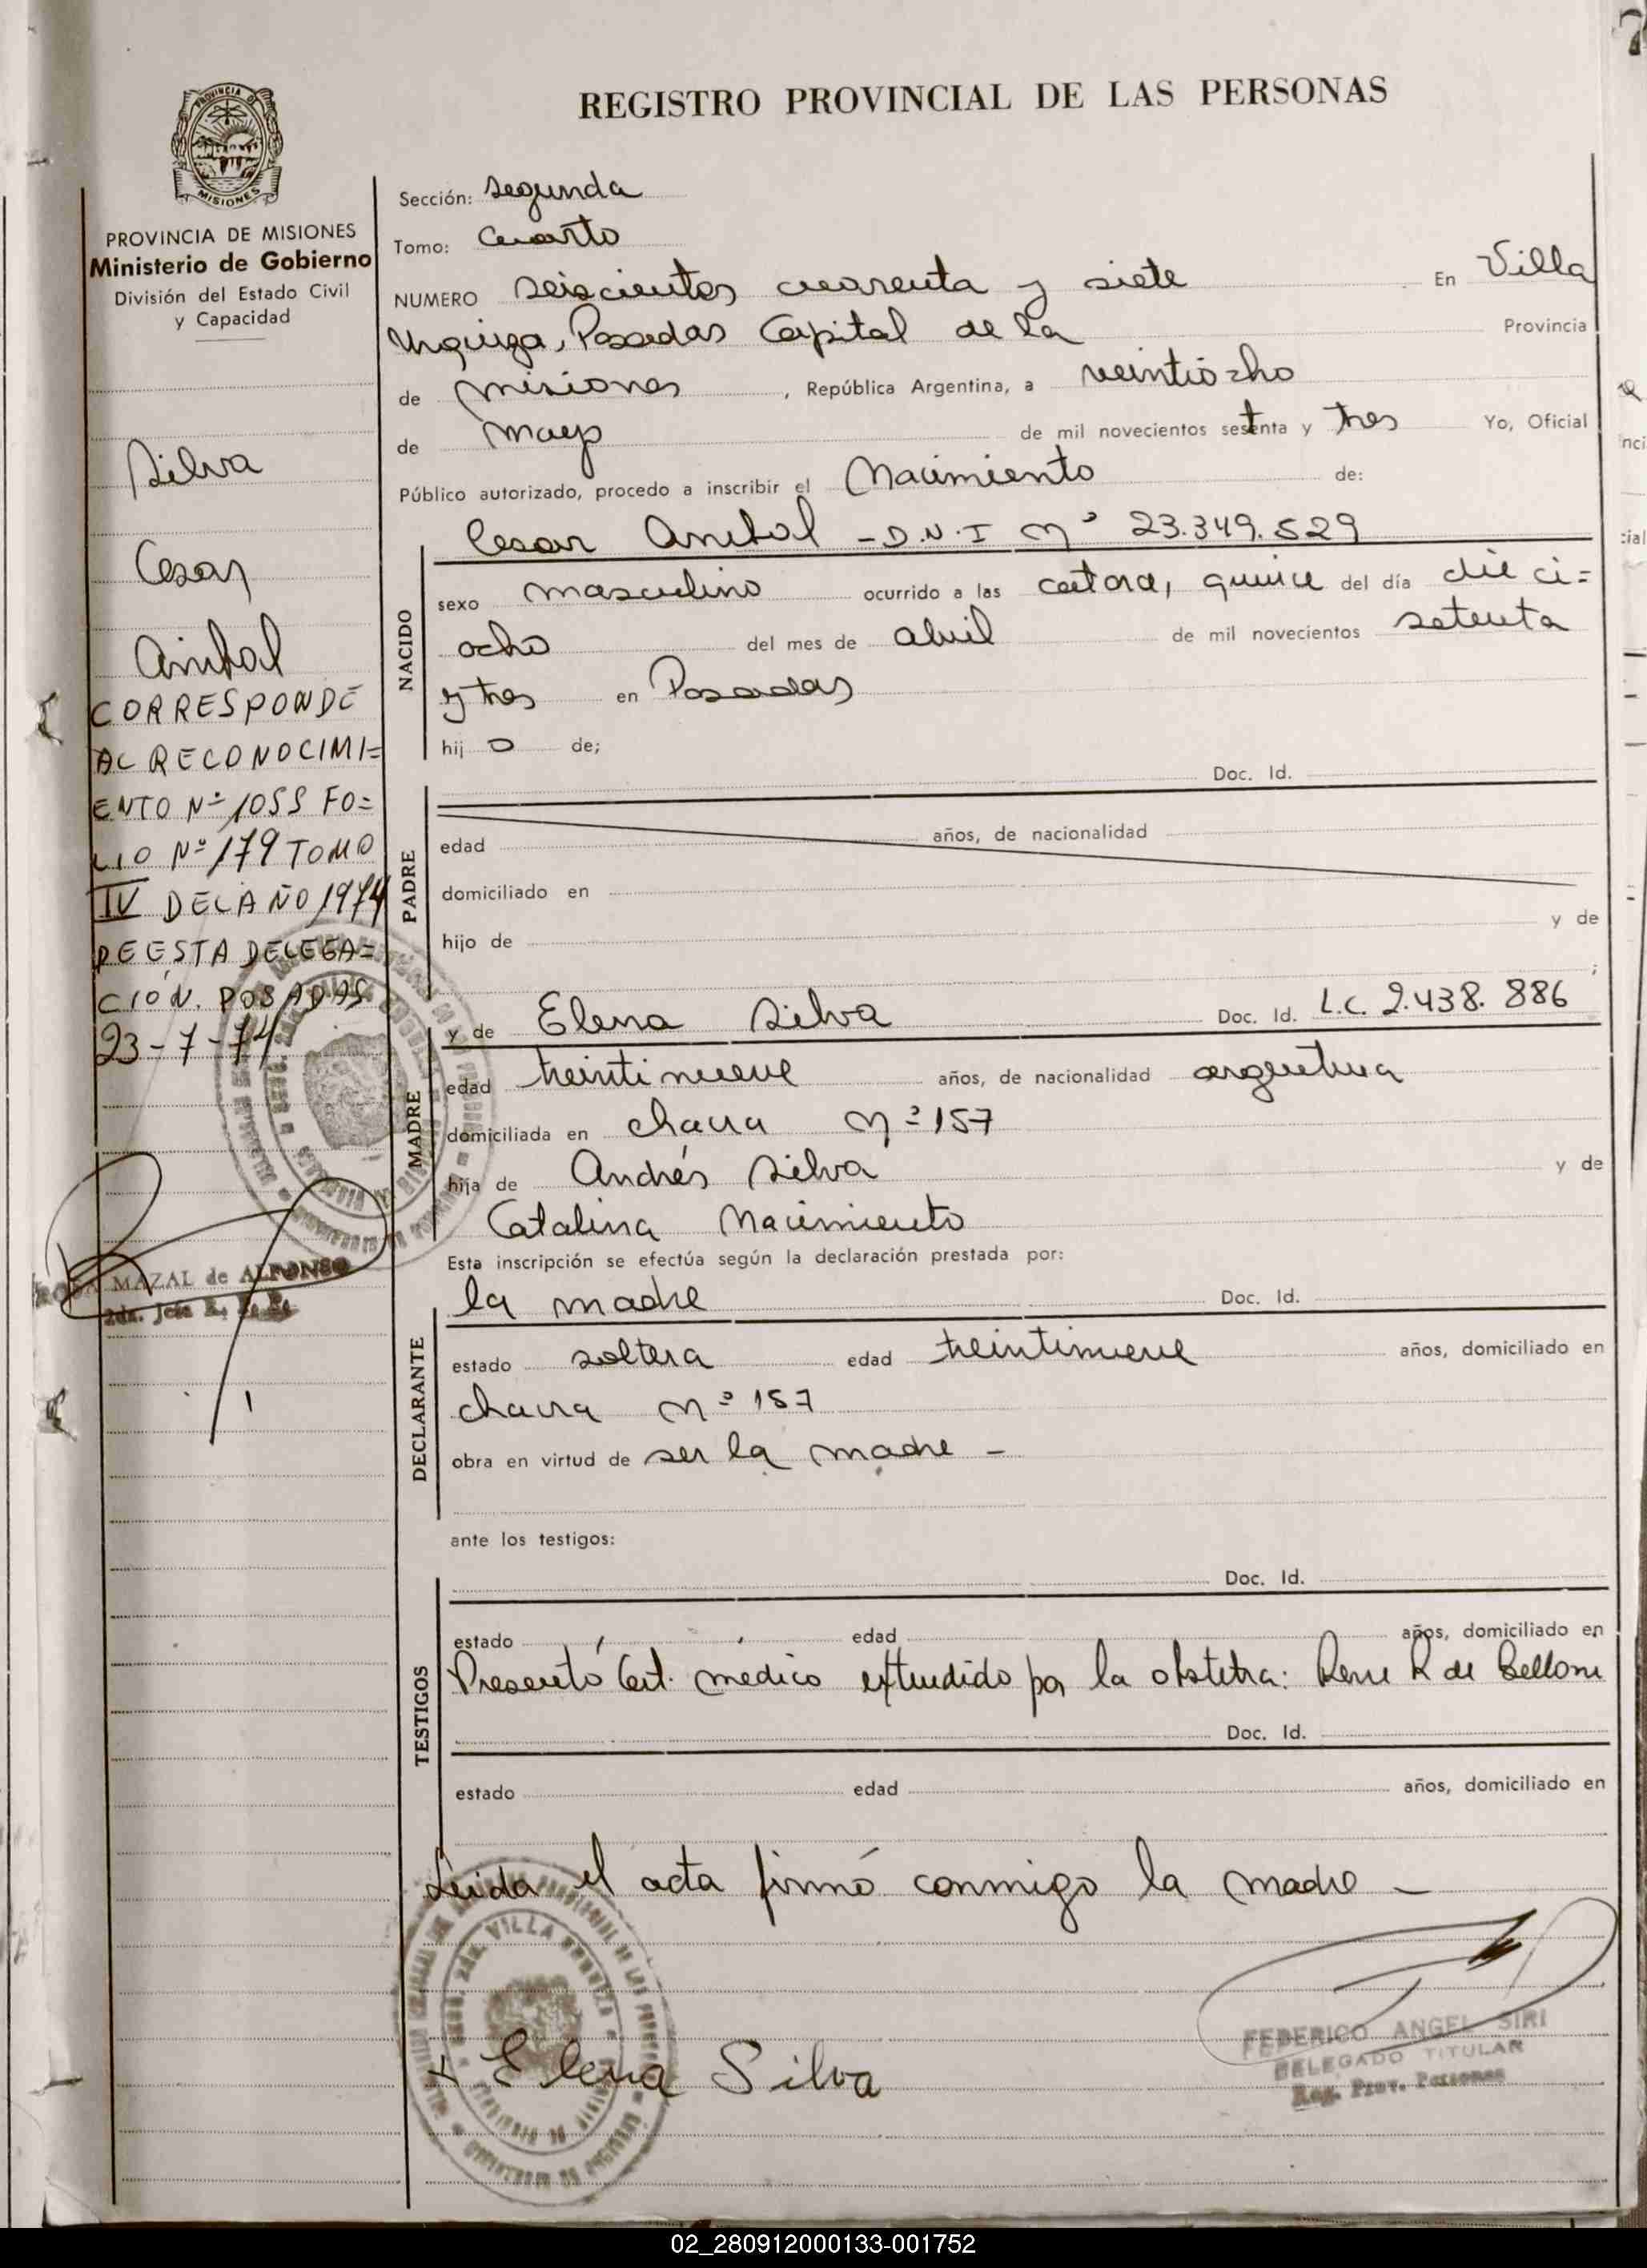 REGISTRO PROVINCIAL DE LAS PERSONAS
PROVINCIA DE
MISIONES
PROVINCIA DE MISIONES
Ministerio de Gobierno
División del Estado Civil
y Capacidad
Silva
Cesar
Anibal
CORRESPONDE
AL RECONOCIMI=
ENTO Nº 1055 FO=
LIO Nº 179 TOMO
IV DEL AÑO 1974
DE ESTA DELEGA=
CIÓN. POSADAS
23-7-74
ROSA MAZAL de ALFONSO
2da. Jefa
Sección: segunda
Tomo: Cuarto
NUMERO seiscientos cuarenta y siete En Villa
Urquiza, Posadas Capital de la Provincia
de misiones, República Argentina, a veintiocho
de mayo de mil novecientos setenta y tres Yo, Oficial
Público autorizado, procedo a inscribir el Nacimiento de:
Cesar Anibal - D.N.I Nº 23.349.529
NACIDO
sexo masculino ocurrido a las catorce, quince del día dieci=
ocho del mes de abril de mil novecientos setenta
y tres en Posadas
hijo de;
Doc. Id.
PADRE
edad años, de nacionalidad
domiciliado en
hijo de y de
;
MADRE
y de Elena Silva Doc. Id. L.C. 2.438.886
edad treintinueve años, de nacionalidad argentina
domiciliada en chacra Nº 157
hija de Andrés Silva y de
Catalina Nacimiento
Esta inscripción se efectúa según la declaración prestada por:
la madre Doc. Id.
DECLARANTE
estado soltera edad treintinueve años, domiciliado en
chacra Nº 157
obra en virtud de ser la madre -
ante los testigos:
Doc. Id.
TESTIGOS
estado edad años, domiciliado en
Presentó Cert. médico extendido por la obstetra: Rene R de Belloni
Doc. Id.
estado edad años, domiciliado en
Leida el acta firmó conmigo la madre -
VILLA URQUIZA
Elena Silva
FEDERICO ANGEL SIRI
DELEGADO TITULAR
Reg. Prov. Personas
02_280912000133-001752